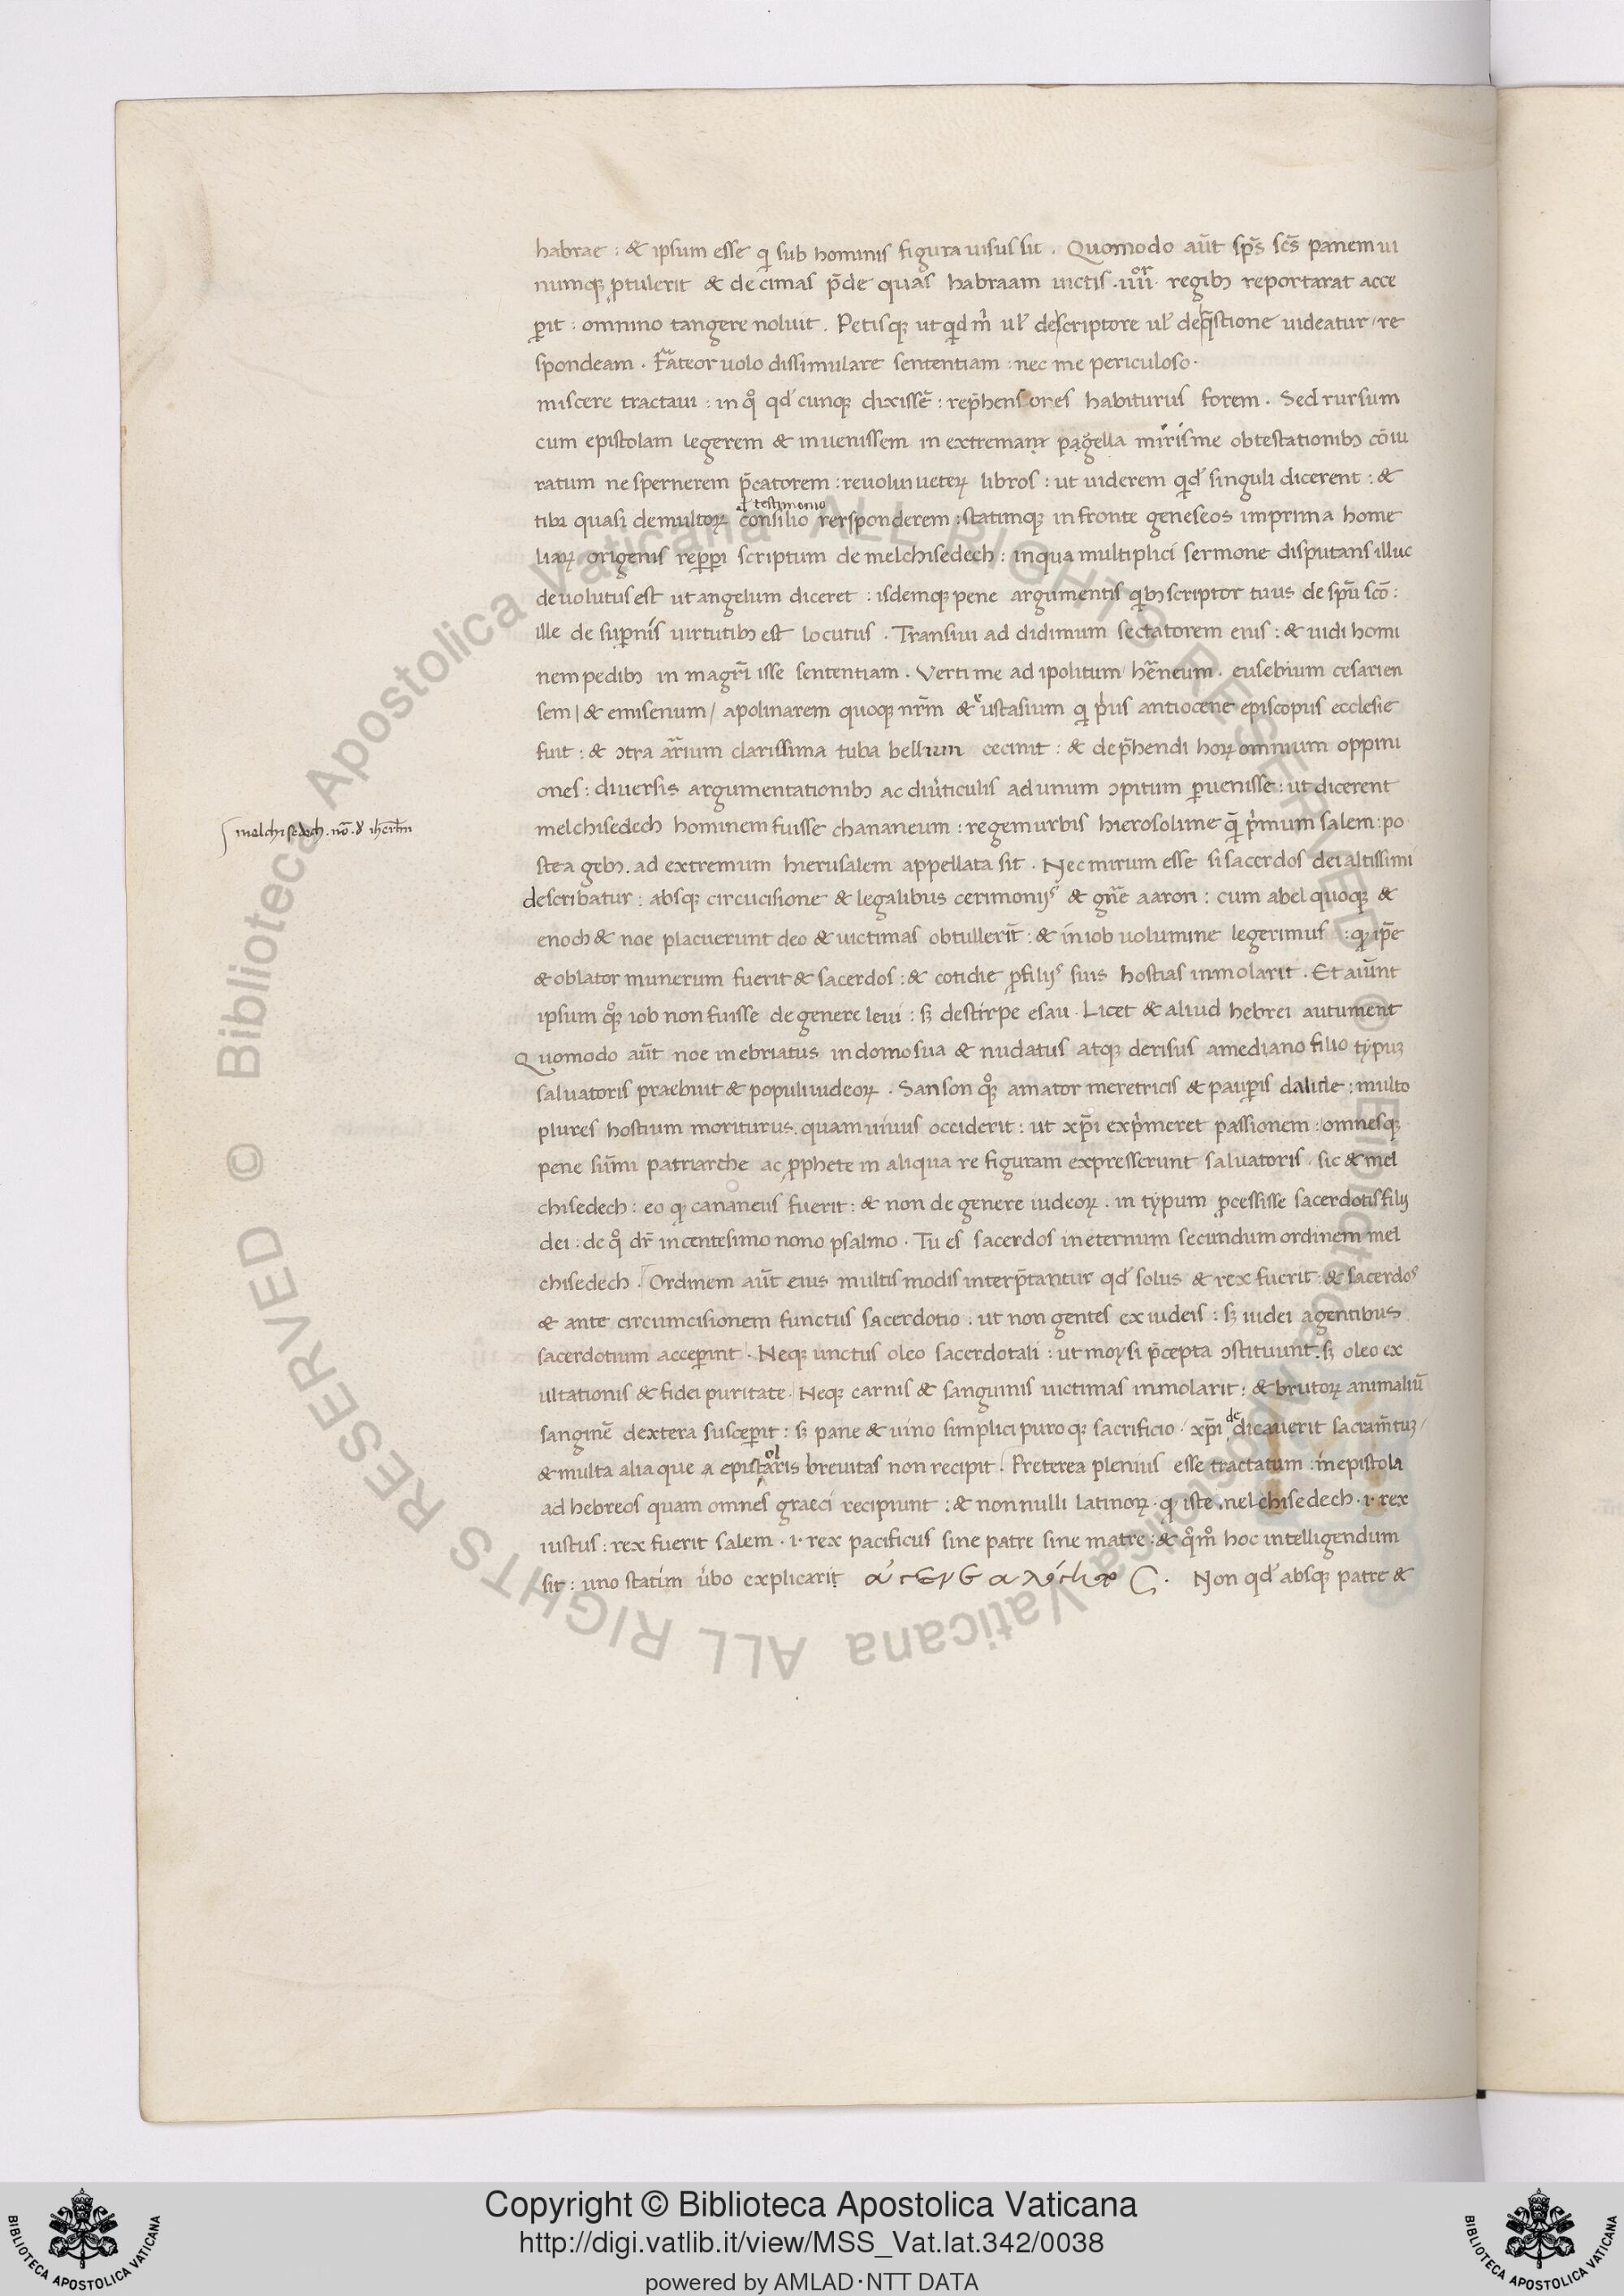 habrae : & ipsum esse q̄ sub hominis figura uisus sit . Quomodo aūt sp̄s sc̄s panem ui
numqꝫ ꝓtulerit & decimas p̄de quas habraam uictis .iiii^or. regibꝫ reportarat acce
ꝑit : omnino tangere noluit . Petisqꝫ ut qd m̄ uł de scriptore uł de q̄stione uideatur / re
spondeam . Fateor uolo dissimulare sententiam : nec me periculoso .
miscere tractaui : in q̊ qd̛ cunqꝫ dixissē : rep̄hensores habiturus forem . Sed rursum
cum epistolam legerem & inuenissem in extremam pagella miris me obtestationibꝫ cōiu
ratum ne spernerem p̄catorem : reuolui ueteꝝ libros : ut uiderem qd̛ singuli dicerent : &
testimonio
tibi quasi de multoꝝ consilio rersponderem : statimqꝫ in fronte geneseos in prima home
liaꝝ origenis reꝑpi scriptum de melchisedech : in qua multiplici sermone disputans illuc
deuolutus est ut angelum diceret : isdemqꝫ pene argumentis qbꝫ scriptor tuus de spū scō :
ille de suꝑnis uirtutibꝫ est locutus . Transiui ad didimum sectatorem eius : & uidi homi
nem pedibꝫ in magr̄i isse sententiam . Verti me ad ipolitum / her̄neum . eusebium cesarien
sem / & emisenum / apolinarem quoqꝫ nr̄m & eustasium q̄ p̛us antiocene episcopus ecclesie
fuit : & ↄtra arrium clarissima tuba bellium cecinit : & dep̄hendi hoꝝ omnium oppini
ones : diuersis argumentationibꝫ ac diưticulis ad unum ↄpitum ꝑuenisse : ut dicerent
∫ melchisedech . nō . ihērlm̄
melchisedech hominem fuisse chananeum : regem urbis hierosolime q̄ p̛mum salem : po
stea gebꝫ . ad extremum hierusalem appellata sit . Nec mirum esse si sacerdos dei altissimi
describatur : absqꝫ circucisione & legalibus cerimonijs & gn̄e aaron : cum abel quoqꝫ &
enoch & noe placuerunt deo & uictimas obtullerīt : & in iob uolumine legerimus : ꝙ ip̄e
& oblator munerum fuerit & sacerdos : & cotidie ꝓ filijs suis hostias inmolarit . Et aiunt
ipsum q̊ꝫ iob non fuisse de genere leui : sꝫ de stirpe esau . Licet & aliud hebrei autument
Quomodo aūt noe inebriatus in domo sua & nudatus atqꝫ derisus a mediano filio typuꝫ
saluatoris praebuit & populi iudeoꝝ . Sanson q̊ꝫ amator meretricis & pauꝑis dalide : multo
plures hostium moriturus . quam uiuus occiderit : ut xp̄i exp̛meret passionem : omnesqꝫ
pene sum̄i patriarche ac ꝓphete in aliqua re figuram expresserunt saluatoris . sic & mel
chisedech : eo ꝙ cananeus fuerit : & non de genere iudeoꝝ . in typum ꝓcessisse sacerdotis filij
dei : de q̊ dr̄ in centesimo nono psalmo . Tu es sacerdos in eternum secundum ordinem mel
chisedech . Ordinem aūt eius multis modis interp̄tantur qd̛ solus & rex fuerit : & sacerdos
& ante circumcisionem functus sacerdotio . ut non gentes ex iudeis : sꝫ iudei a gentibus
sacerdotium acceꝑint . Neqꝫ unctus oleo sacerdotali : ut moysi p̄cepta ↄstituunt . sꝫ oleo ex
ultationis & fidei puritate . Neqꝫ carnis & sanguinis uictimas inmolarit : & brutoꝝ animaliū
sanginē dextera susceꝑit : sꝫ pane & uino simplici puroqꝫ sacrificio . xp̄i dedicauerit sacram̄tuꝫ /
& multa alia que a epistolaris breuitas non recipit . Preterea plenius esse tractatum : in epistola
ad hebreos quam omnes graeci recipiunt : & non nulli latinoꝝ . ꝙ iste melchisedech . i . rex
iustus : rex fuerit salem . i . rex pacificus sine patre sine matre : & q̊m̊ hoc intelligendum
sit : uno statim ưbo explicarit Non qd̛ absqꝫ patre &
Copyright © Biblioteca Apostolica Vaticana
http://digi.vatlib.it/view/MSS_Vat.lat.342/0038
powered by AMLAD·NTT DATA
BIBLIOTECA APOSTOLICA VATICANA
BIBLIOTECA APOSTOLICA VATICANA
© Biblioteca Apostolica Vaticana ALL RIGHTS RESERVED © Biblioteca Apostolica Vaticana ALL RIGHTS RESERVED